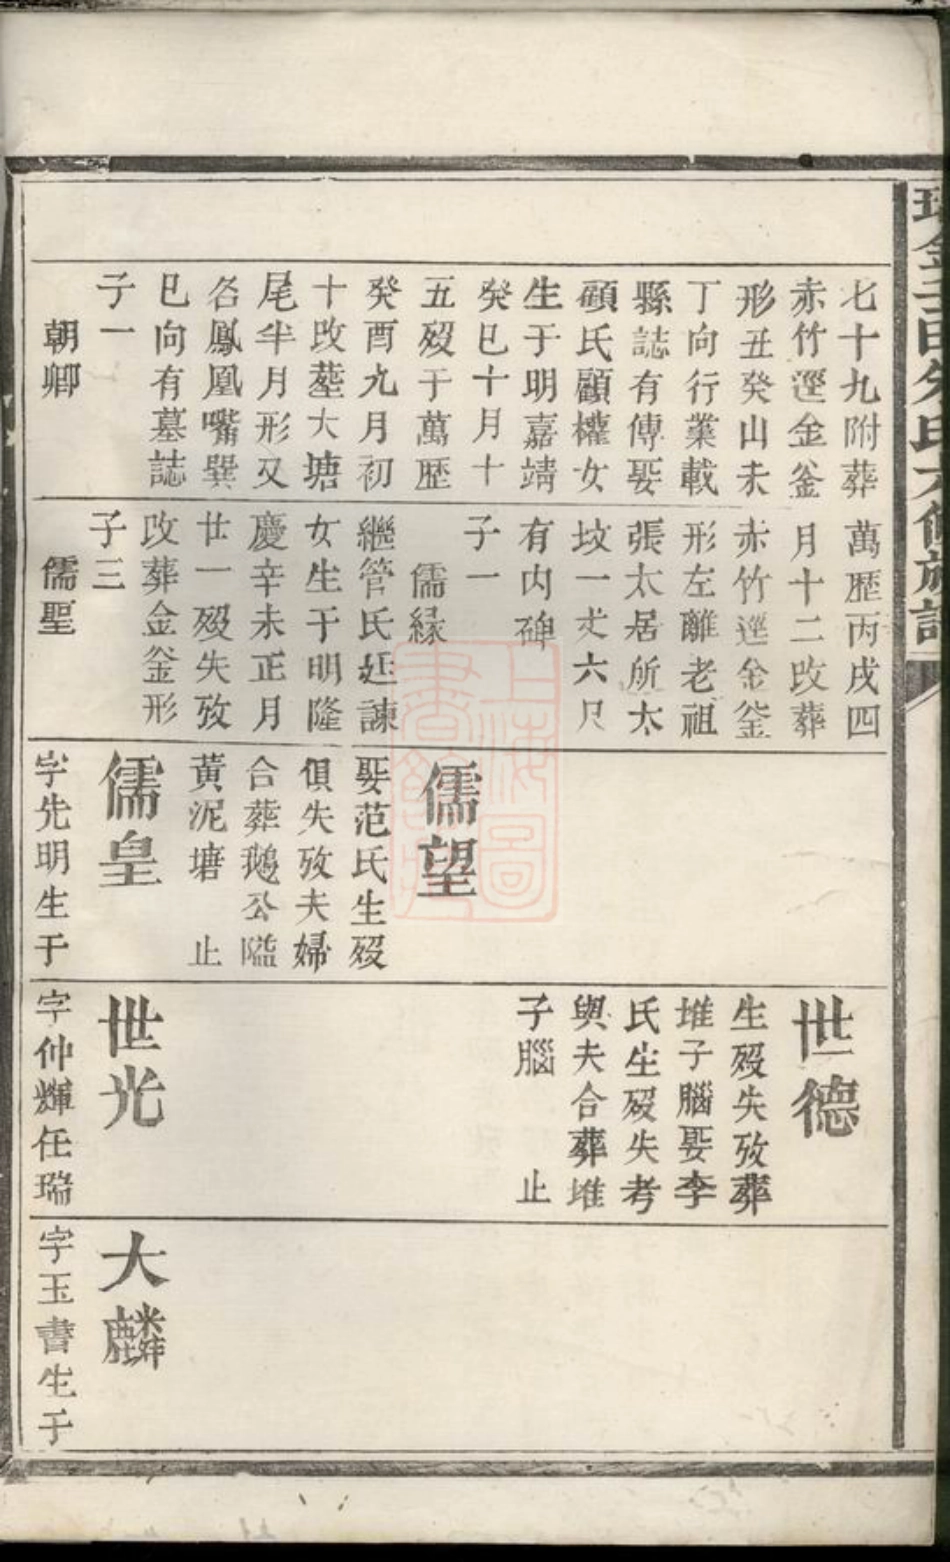 七十九附葬
赤竹逕金釜
形丑癸山未
丁向行業載
縣誌有傳娶
顧氏顧權女
生于明嘉靖
癸巳十月十
五歿于萬歷
癸酉九月初
十改塟大塘
尾半月形又
名鳳凰嘴巽
巳向有墓誌
子一
朝卿
萬歷丙戌四
月十二改葬
赤竹逕金釜
形左離老祖
張太居所太
坟一丈六尺
有内碑
子一
儒緣
繼管氏廷諫
女生于明隆
慶辛未正月
廿一歿失攷
改葬金釜形
子三
儒聖
儒望
娶范氏生歿
俱失攷夫婦
合葬鵝公隘
黄泥塘 止
儒皇
字先明生于
世德
生歿失攷葬
堆子腦娶李
氏生歿失考
與夫合葬堆
子腦 止
世光
字仲輝任瑞
大麟
字玉書生于
上海圖
書館藏